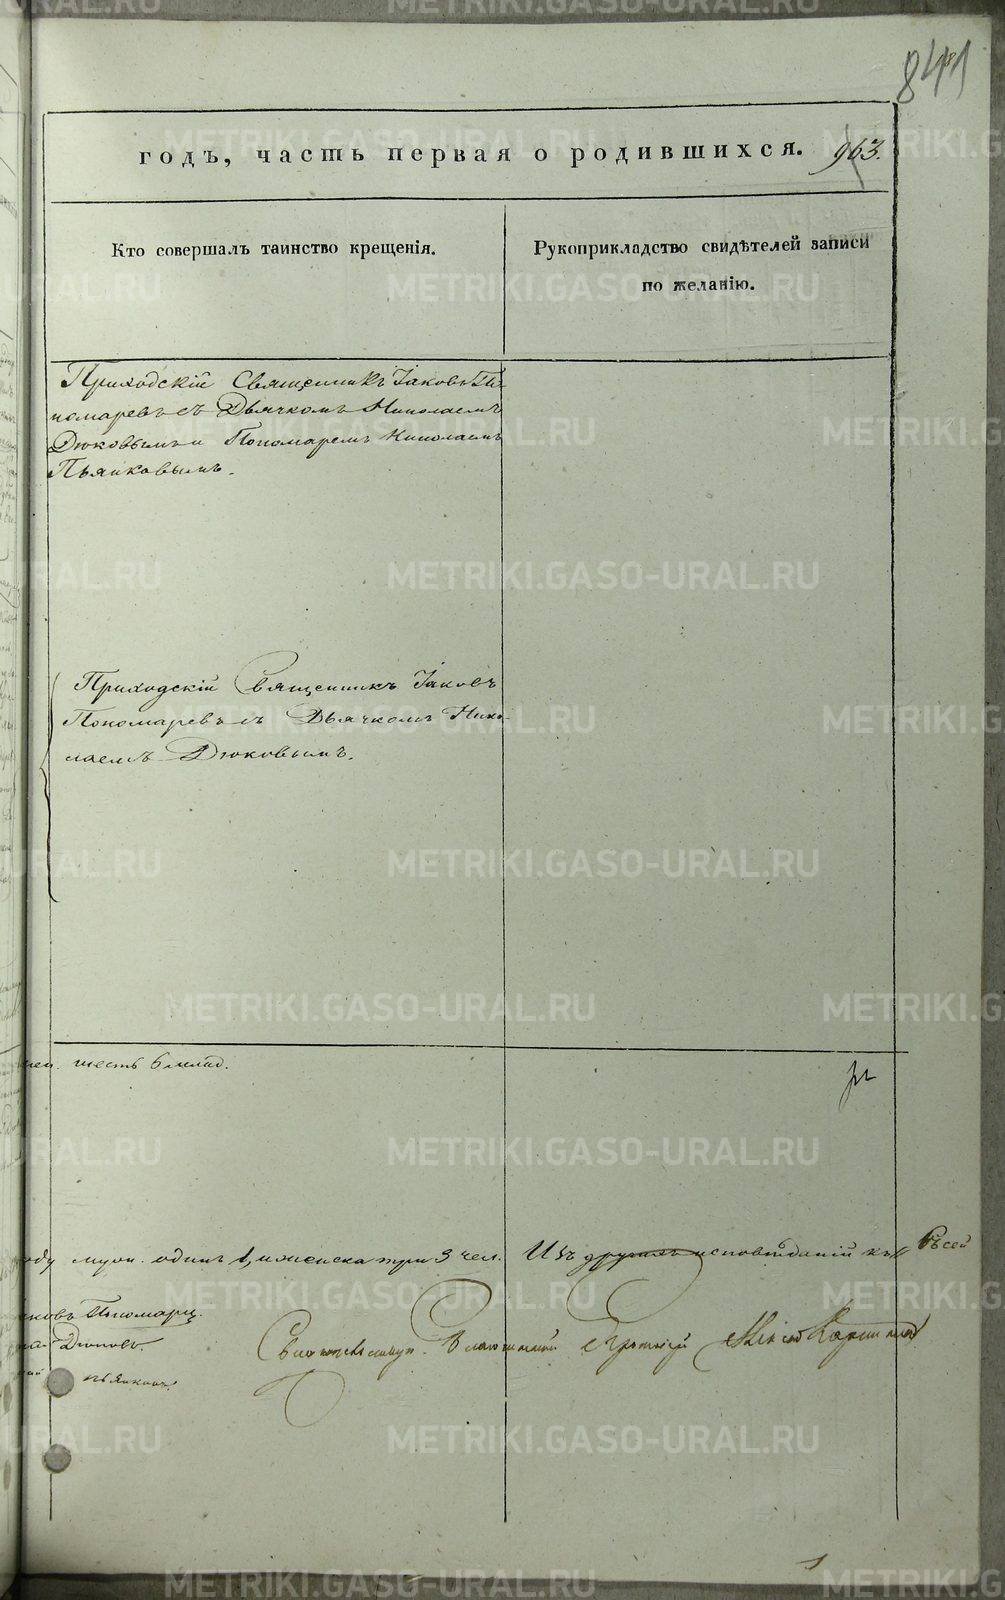 841
годъ, часть первая о родившихся. 963.
Кто совершалъ таинство крещенія.
Рукоприкладство свидѣтелей записи
по желанію.
Приходскій Священникъ Іаковъ По-
номаревъ съ Дьячкомъ Николаемъ
Дюковымъ и Пономаремъ Николаемъ
Пьянковымъ.
Приходскій Священникъ Іаковъ
Пономаревъ съ Дьячкомъ Нико-
лаемъ Дюковымъ.
шесть 6 млад.
оду муж. одинъ 1, и женска три 3 чел. Изъ другихъ исповѣданій къ
ковъ Пономарц.
Дюковъ.
Благочинный
METRIKI.GASO-URAL.RU